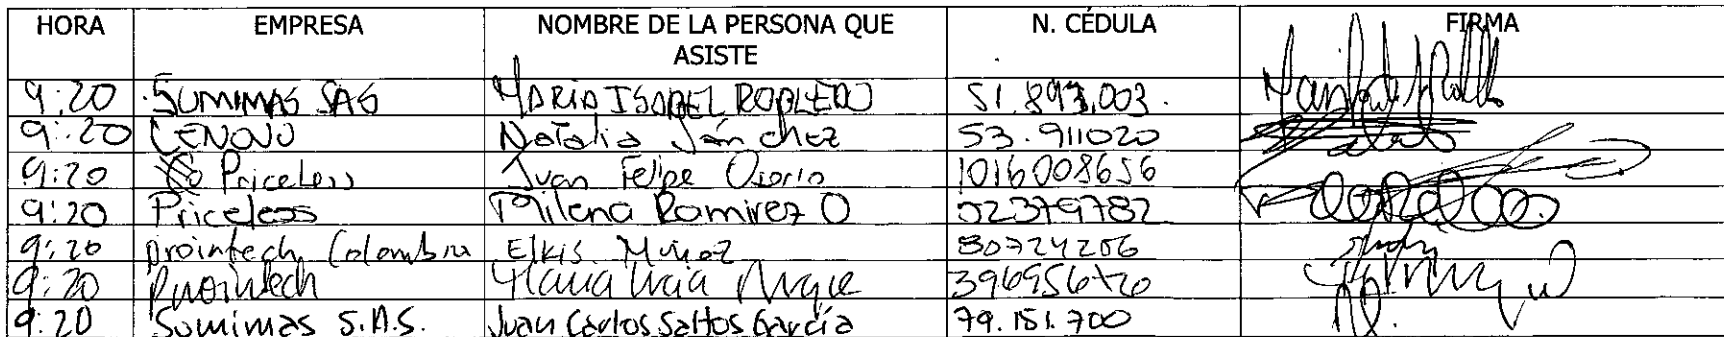 HORA EMPRESA NOMBRE DE LA PERSONA QUE ASISTE N. CÉDULA FIRMA
9:20 SUMIMAS SAS MARIA ISABEL ROBLEDO 51.893.003.
9:20 LENOVO Natalia Sánchez 53.911020
9:20 Priceless Juan Felipe Osorio 1016008656
9:20 Priceless Milena Ramirez O 52379782
9:20 prointech Colombia Elkis Muñoz 80724206
9:20 Prointech
9:20 Sumimas S.A.S. Juan Carlos Saltos García 79.151.700